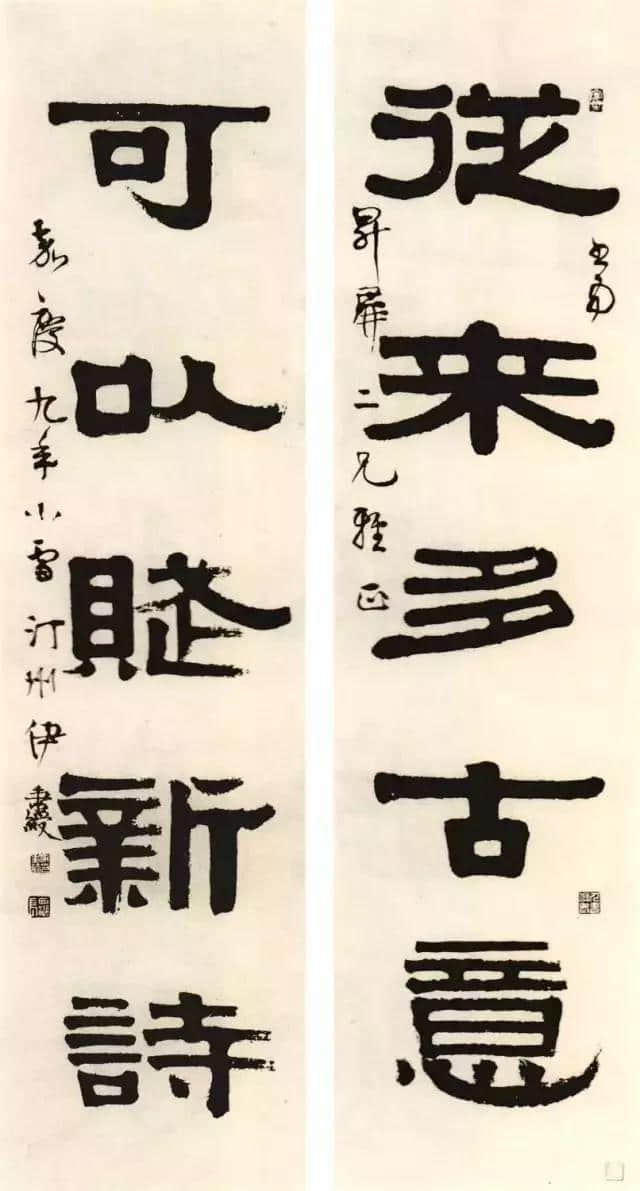 從來多古意
二兄雅正
可以賦新詩
嘉慶九年小雪汀州伊秉綬